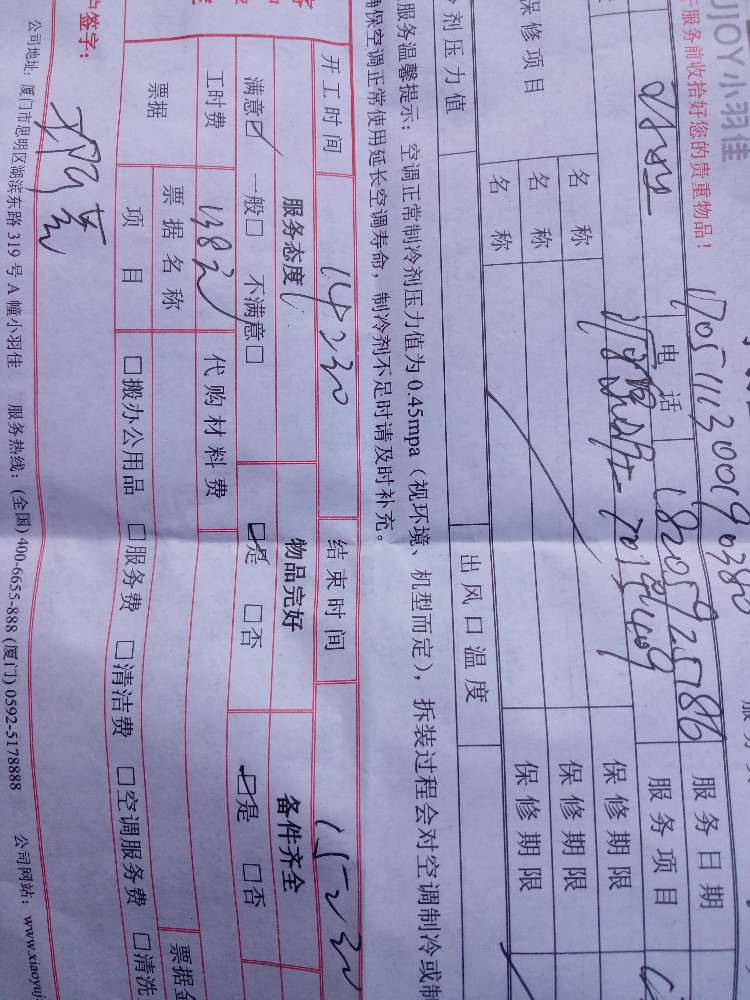 UJOY小羽佳
服务前收拾好您的贵重物品！
1705111300190380
服务日期
电话
18205925786
服务项目
701室409
保修期限
保修项目
名称
保修期限
名称
保修期限
名称
剂压力值
出风口温度
服务温馨提示：空调正常制冷剂压力值为0.45mpa（视环境、机型而定），拆装过程会对空调制冷或制
确保空调正常使用延长空调寿命，制冷剂不足时请及时补充。
开工时间
14:30
结束时间
15:30
服务态度
物品完好
备件齐全
满意☑ 一般□ 不满意□
☑是 □否
☑是 □否
工时费
138元
代购材料费
票据
票据名称
票据金
项目
□搬办公用品 □服务费 □清洁费 □空调服务费 □清洗
户签字：
公司地址：厦门市思明区湖滨东路319号A幢小羽佳 服务热线：(全国) 400-6655-888 (厦门) 0592-5178888 公司网站：www.xiaoyuj